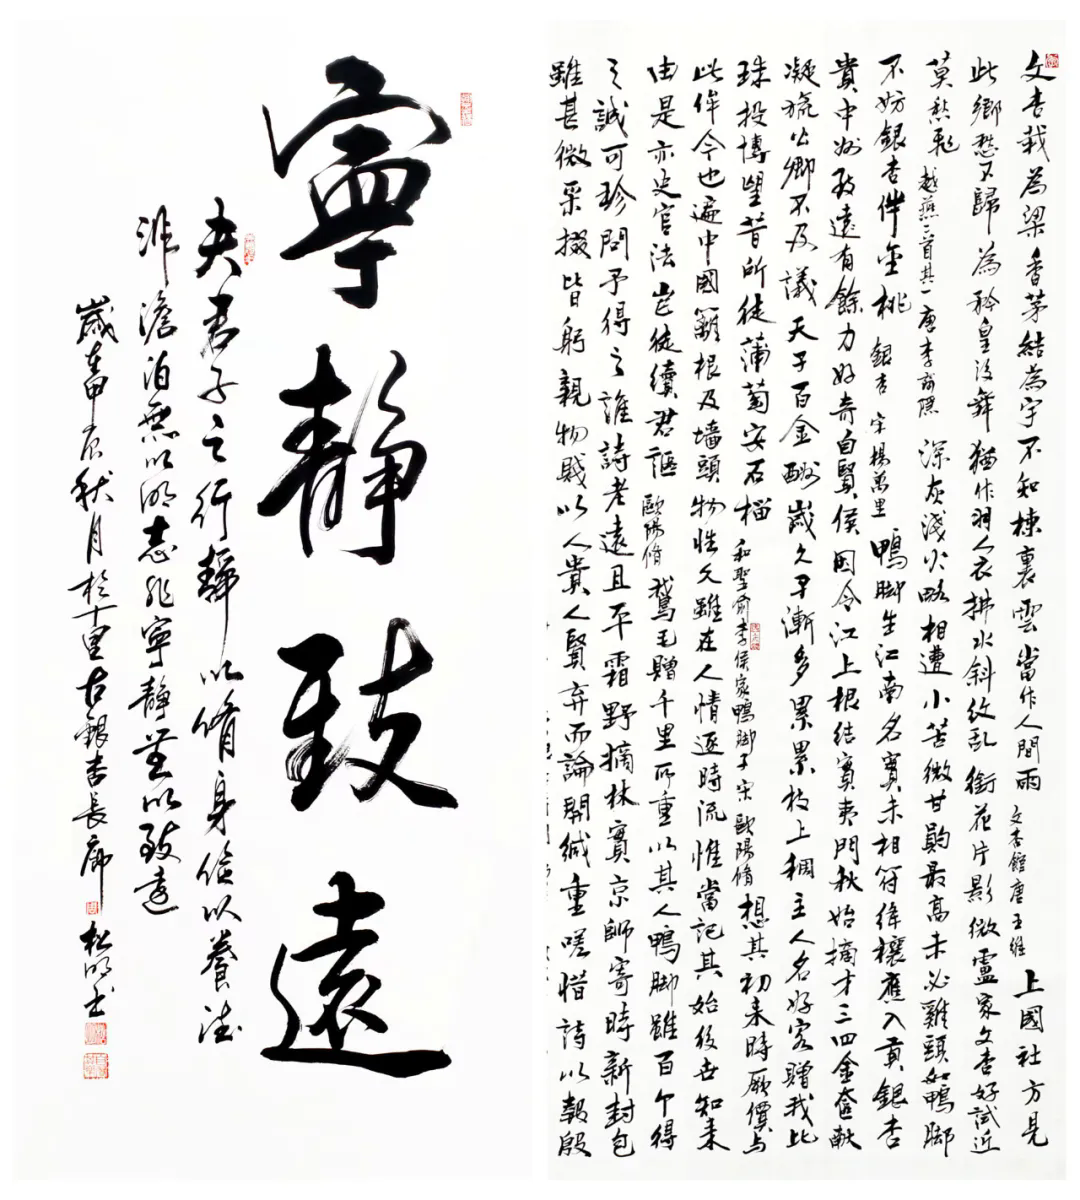 寧靜致遠
夫君子之行靜以脩身儉以養德
非澹泊無以明志非寧靜無以致遠
歲在甲辰秋月於十里古銀杏長廊 松明書
文杏栽為梁香茅結為宇不知棟裏雲當作人間雨 文杏館唐王維 上國社方見
此鄉愁不歸為矜皇后舞猶作羽人衣拂水斜紋亂銜花片影微盧家文杏好試近
莫愁飛 越燕二首其一唐李商隱 深灰淺火略相遭小苦微甘韵最高未必雞頭如鴨脚
不妨銀杏伴金桃 銀杏 宋楊萬里 鴨脚生江南名實未相符絳囊應入貢銀杏
貴中州致遠有餘力好奇自賢侯因令江上根結實夷門秋始摘才三四金奩獻
凝旒公卿不及議天子百金酬歲久子漸多累累枝上稠主人名好客贈我比
珠投博望昔所徒蒲萄安石榴 和聖俞李侯家鴨脚子宋歐陽脩 想其初来時厥價與
此侔今也遍中國籬根及墙頭物性久雖在人情逐時流惟當記其始後世知来
由是亦史官法豈徒續君謳 歐陽脩 鵝毛贈千里所重以其人鴨脚雖百个得
之誠可珍問予得之誰詩老遠且平霜野摘林實京師寄時新封包
雖甚微采掇皆躬親物賤以人貴人賢弃而論開緘重嗟惜詩以報殷